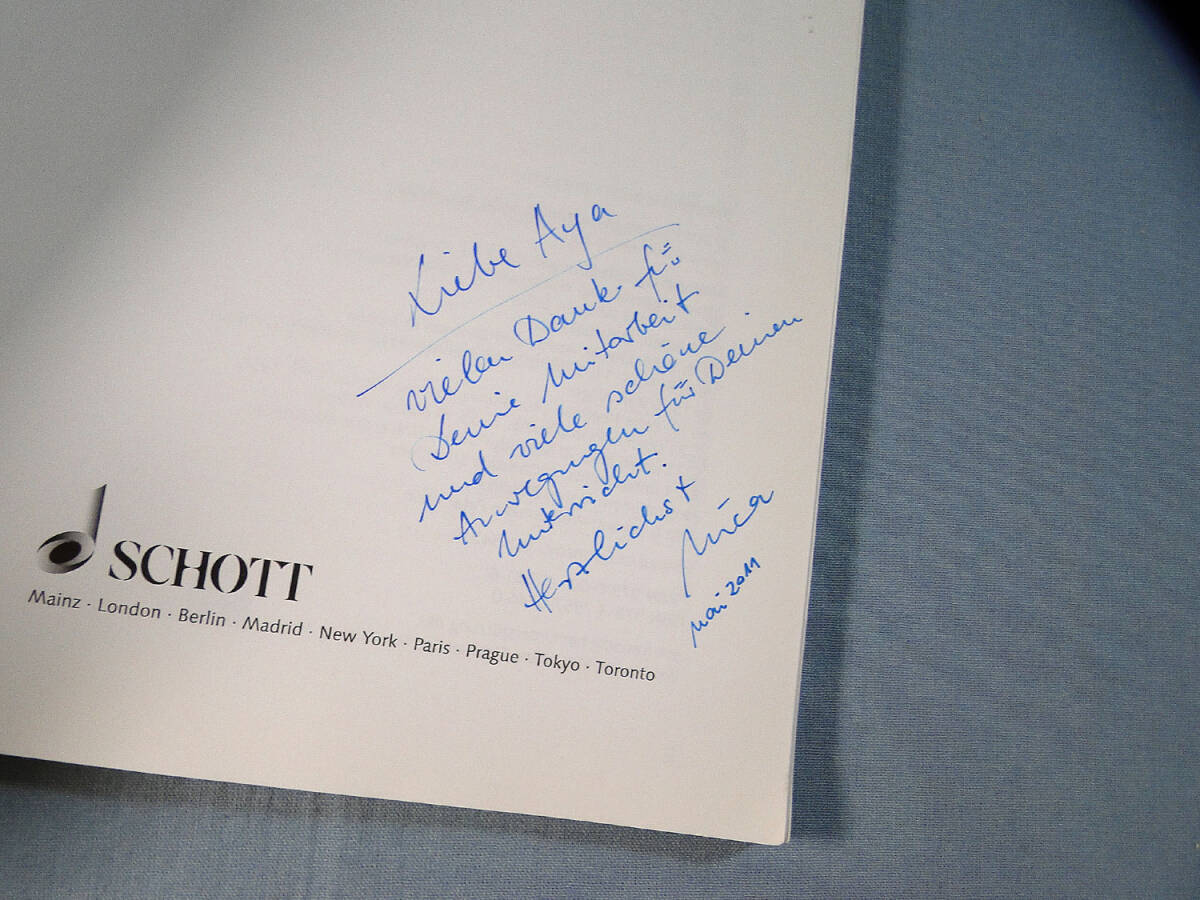 Liebe Aya
vielen Dank für
Deine Mitarbeit
und viele schöne
Anregungen für Deinen
Unterricht.
Herzlichst
Mai 2011
SCHOTT
Mainz · London · Berlin · Madrid · New York · Paris · Prague · Tokyo · Toronto